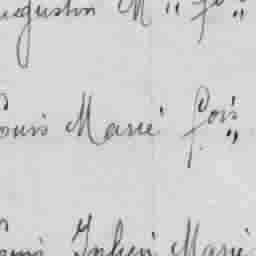 Augustin M " fs "
Louis Marie fois "
Louis Julien Marie